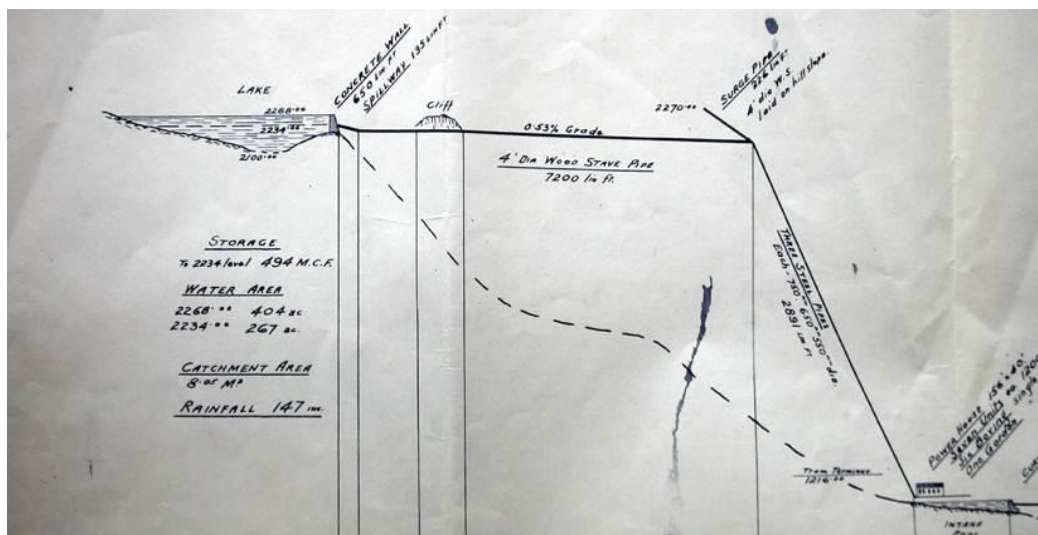 LAKE
2268.00
2234.00
2100.00
CONCRETE WALL
650 LIN FT
SPILLWAY 135 LIN FT
Cliff
0.53% Grade
4' DIA WOOD STAVE PIPE
7200 lin ft.
2270.00
SURGE PIPE
226 LIN FT.
4' dia W.S.
laid on hill slope.
STORAGE
To 2234 level 494 M.C.F.
WATER AREA
2268.00 404 ac.
2234.00 267 ac.
CATCHMENT AREA
8.05 M²
RAINFALL 147 INS.
THREE STEEL PIPES
Each - 750' - 650' - 550' - dia.
2891 LIN FT
Tram Terminus
1216.00
POWER HOUSE 156' x 40'
Seven Units on
Six Boving
One Gordon
single
INTAKE
POOL